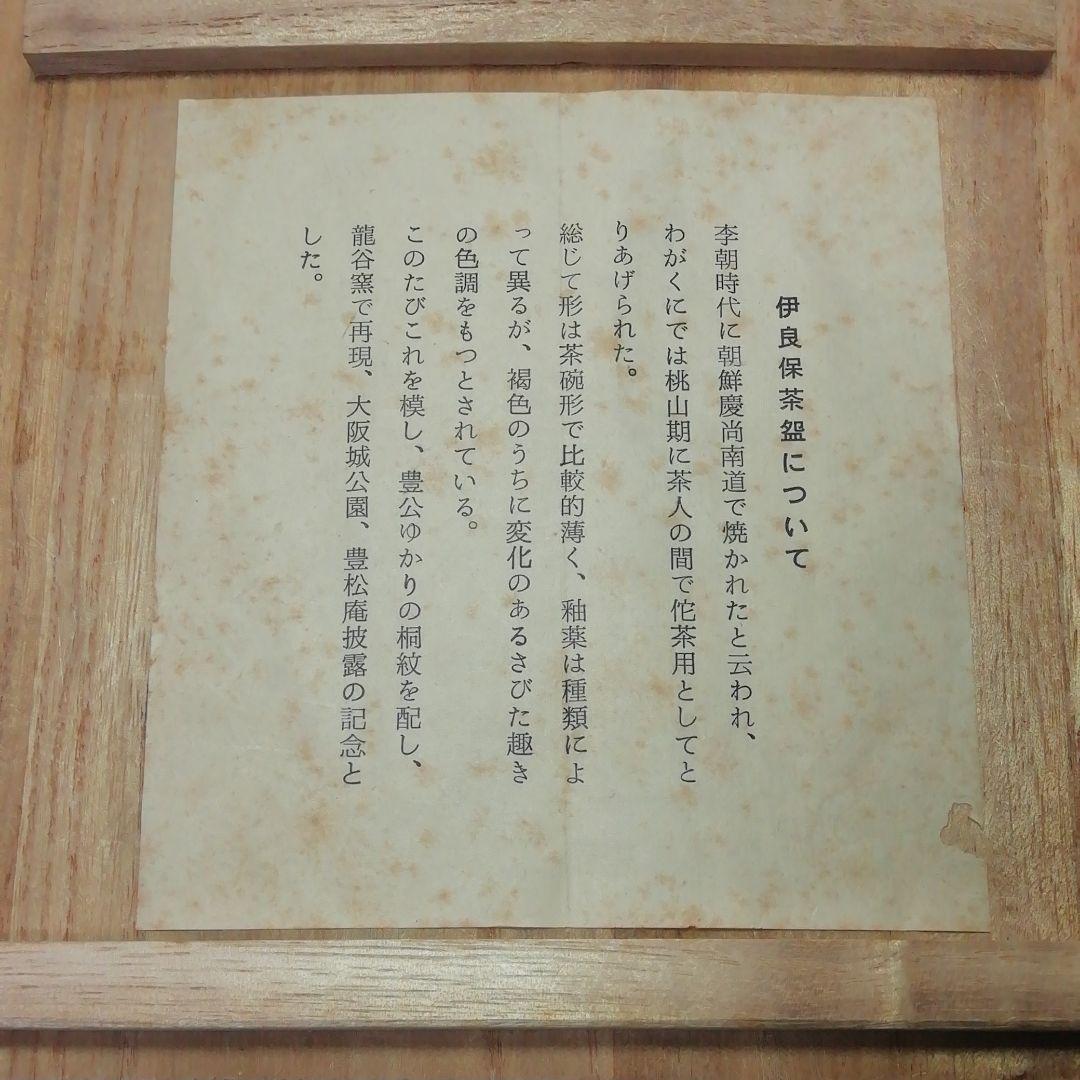 伊良保茶盌について
李朝時代に朝鮮慶尚南道で焼かれたと云われ、
わがくにでは桃山期に茶人の間で佗茶用としてと
りあげられた。
総じて形は茶碗形で比較的薄く、釉薬は種類によ
って異るが、褐色のうちに変化のあるさびた趣き
の色調をもつとされている。
このたびこれを模し、豊公ゆかりの桐紋を配し、
龍谷窯で再現、大阪城公園、豊松庵披露の記念と
した。